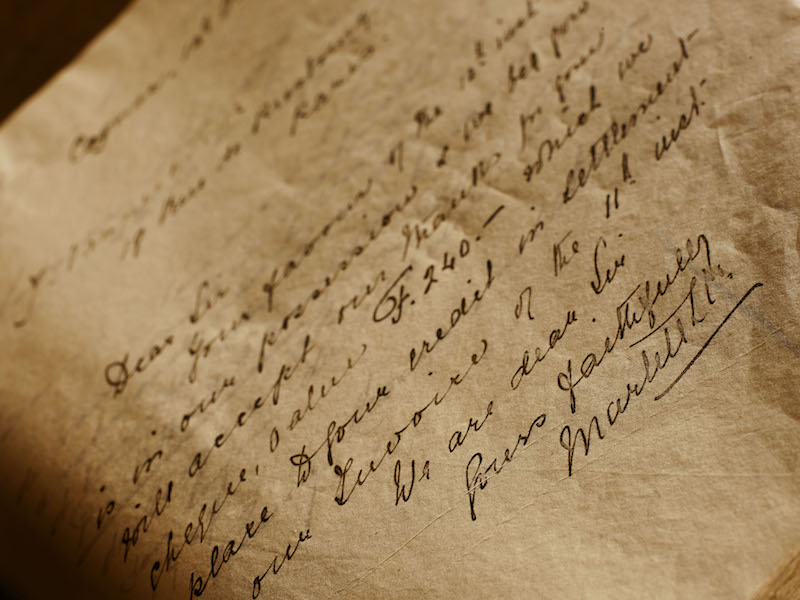 Cognac,
Paris.
Dear Sir
Your favour of the 10th inst
is in our possession & we beg you
will accept our thanks for your
cheque, value F. 240.— which we
place to your credit in settlement
our Invoice of the 11th inst:
We are dear Sir
Yours faithfully